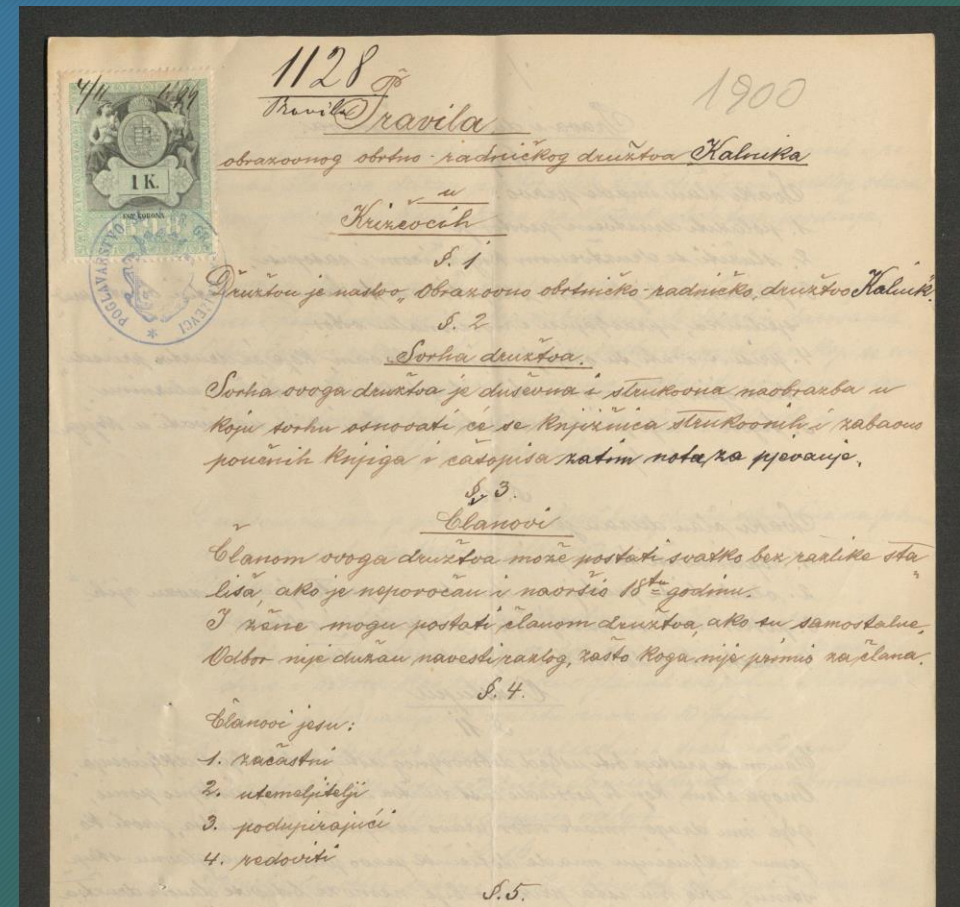 1128
1900
Pravila
Pravila
obrazovnog obrtno-radničkog družtva Kalnika
u
Križevcih
§. 1
Družtvu je naslov „Obrazovno obrtničko-radničko družtvo Kalnik.
§. 2
Svrha družtva.
Svrha ovoga družtva je duševna i strukovna naobrazba u
koju svrhu osnovati će se knjižnica strukovnih i zabavno
poučnih knjiga i časopisa zatim nota za pjevanje.
§. 3.
Članovi
Članom ovoga družtva može postati svatko bez razlike sta-
liša, ako je neporočan i navršio 18tu godinu.
I žene mogu postati članom družtva, ako su samostalne.
Odbor nije dužan navesti razlog, zašto koga nije primio za člana.
§. 4.
Članovi jesu:
1. začastni
2. utemeljitelji
3. podupirajući
4. redoviti
§. 5.
4/11
1 K.
POGLAVARSTVO